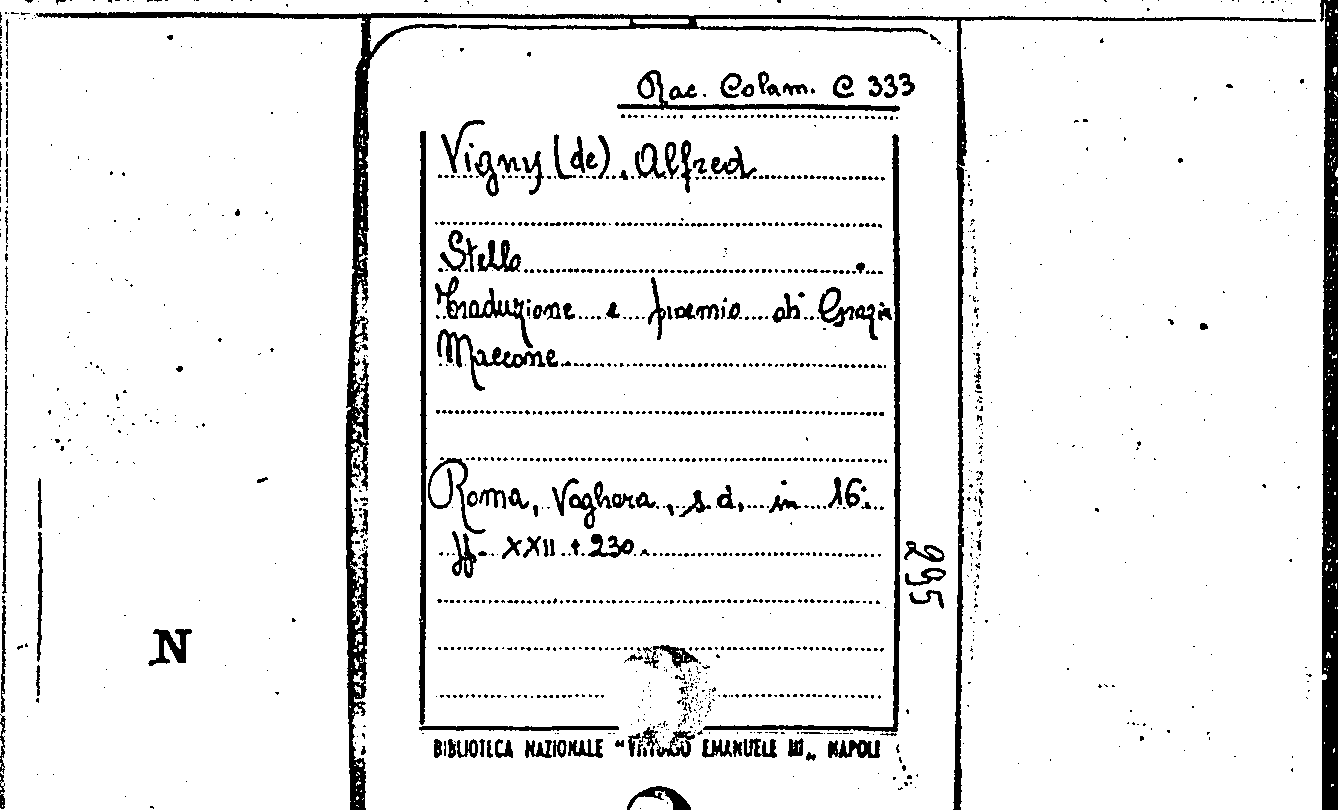 Rac. Colam. C 333
Vigny (de), Alfred
Stello
Traduzione e proemio di Grazia
Maccone
Roma, Voghera, s.d. in 16:
pp. XXII + 230.
295
N
BIBLIOTECA NAZIONALE "VITTORIO EMANUELE III" NAPOLI